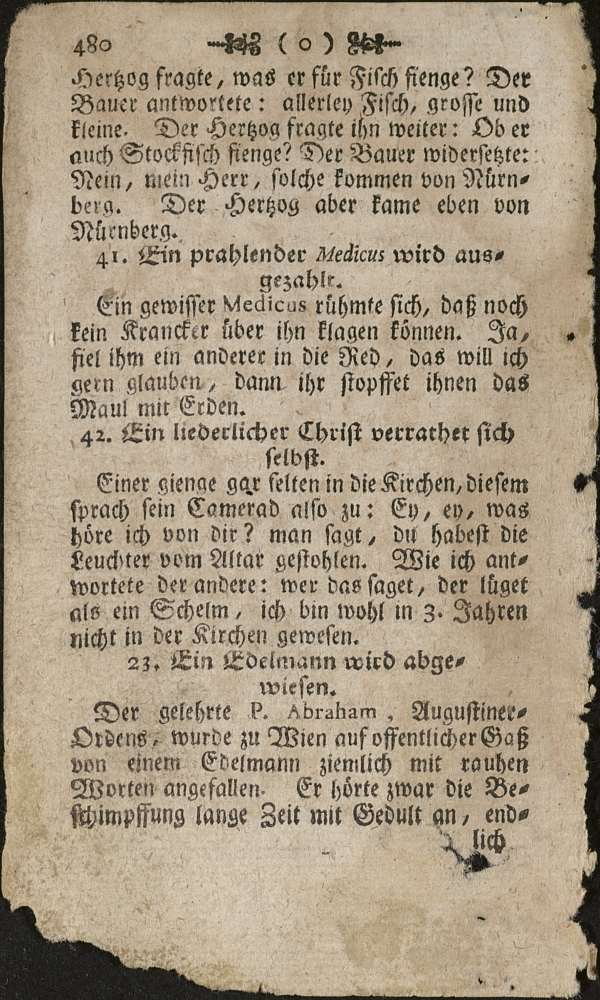 480 ( o )
Hertzog fragte, was er für Fisch fienge? Der
Bauer antwortete: allerley Fisch, grosse und
kleine. Der Hertzog fragte ihn weiter: Ob er
auch Stockfisch fienge? Der Bauer widersetzte:
Nein, mein Herr, solche kommen von Nürn-
berg. Der Hertzog aber kame eben von
Nürnberg.
41. Ein prahlender Medicus wird aus-
gezahlt.
Ein gewisser Medicus rühmte sich, daß noch
kein Krancker über ihn klagen können. Ja,
fiel ihm ein anderer in die Red, das will ich
gern glauben, dann ihr stopffet ihnen das
Maul mit Erden.
42. Ein liederlicher Christ verrathet sich
selbst.
Einer gienge gar selten in die Kirchen, diesem
sprach sein Camerad also zu: Ey, ey, was
höre ich von dir? man sagt, du habest die
Leuchter vom Altar gestohlen. Wie ich ant-
wortete der andere: wer das saget, der lüget
als ein Schelm, ich bin wohl in 3. Jahren
nicht in der Kirchen gewesen.
23. Ein Edelmann wird abge-
wiesen.
Der gelehrte P. Abraham, Augustiner-
Ordens, wurde zu Wien auf offentlicher Gaß
von einem Edelmann ziemlich mit rauhen
Worten angefallen. Er hörte zwar die Be-
schimpffung lange Zeit mit Gedult an, end-
lich